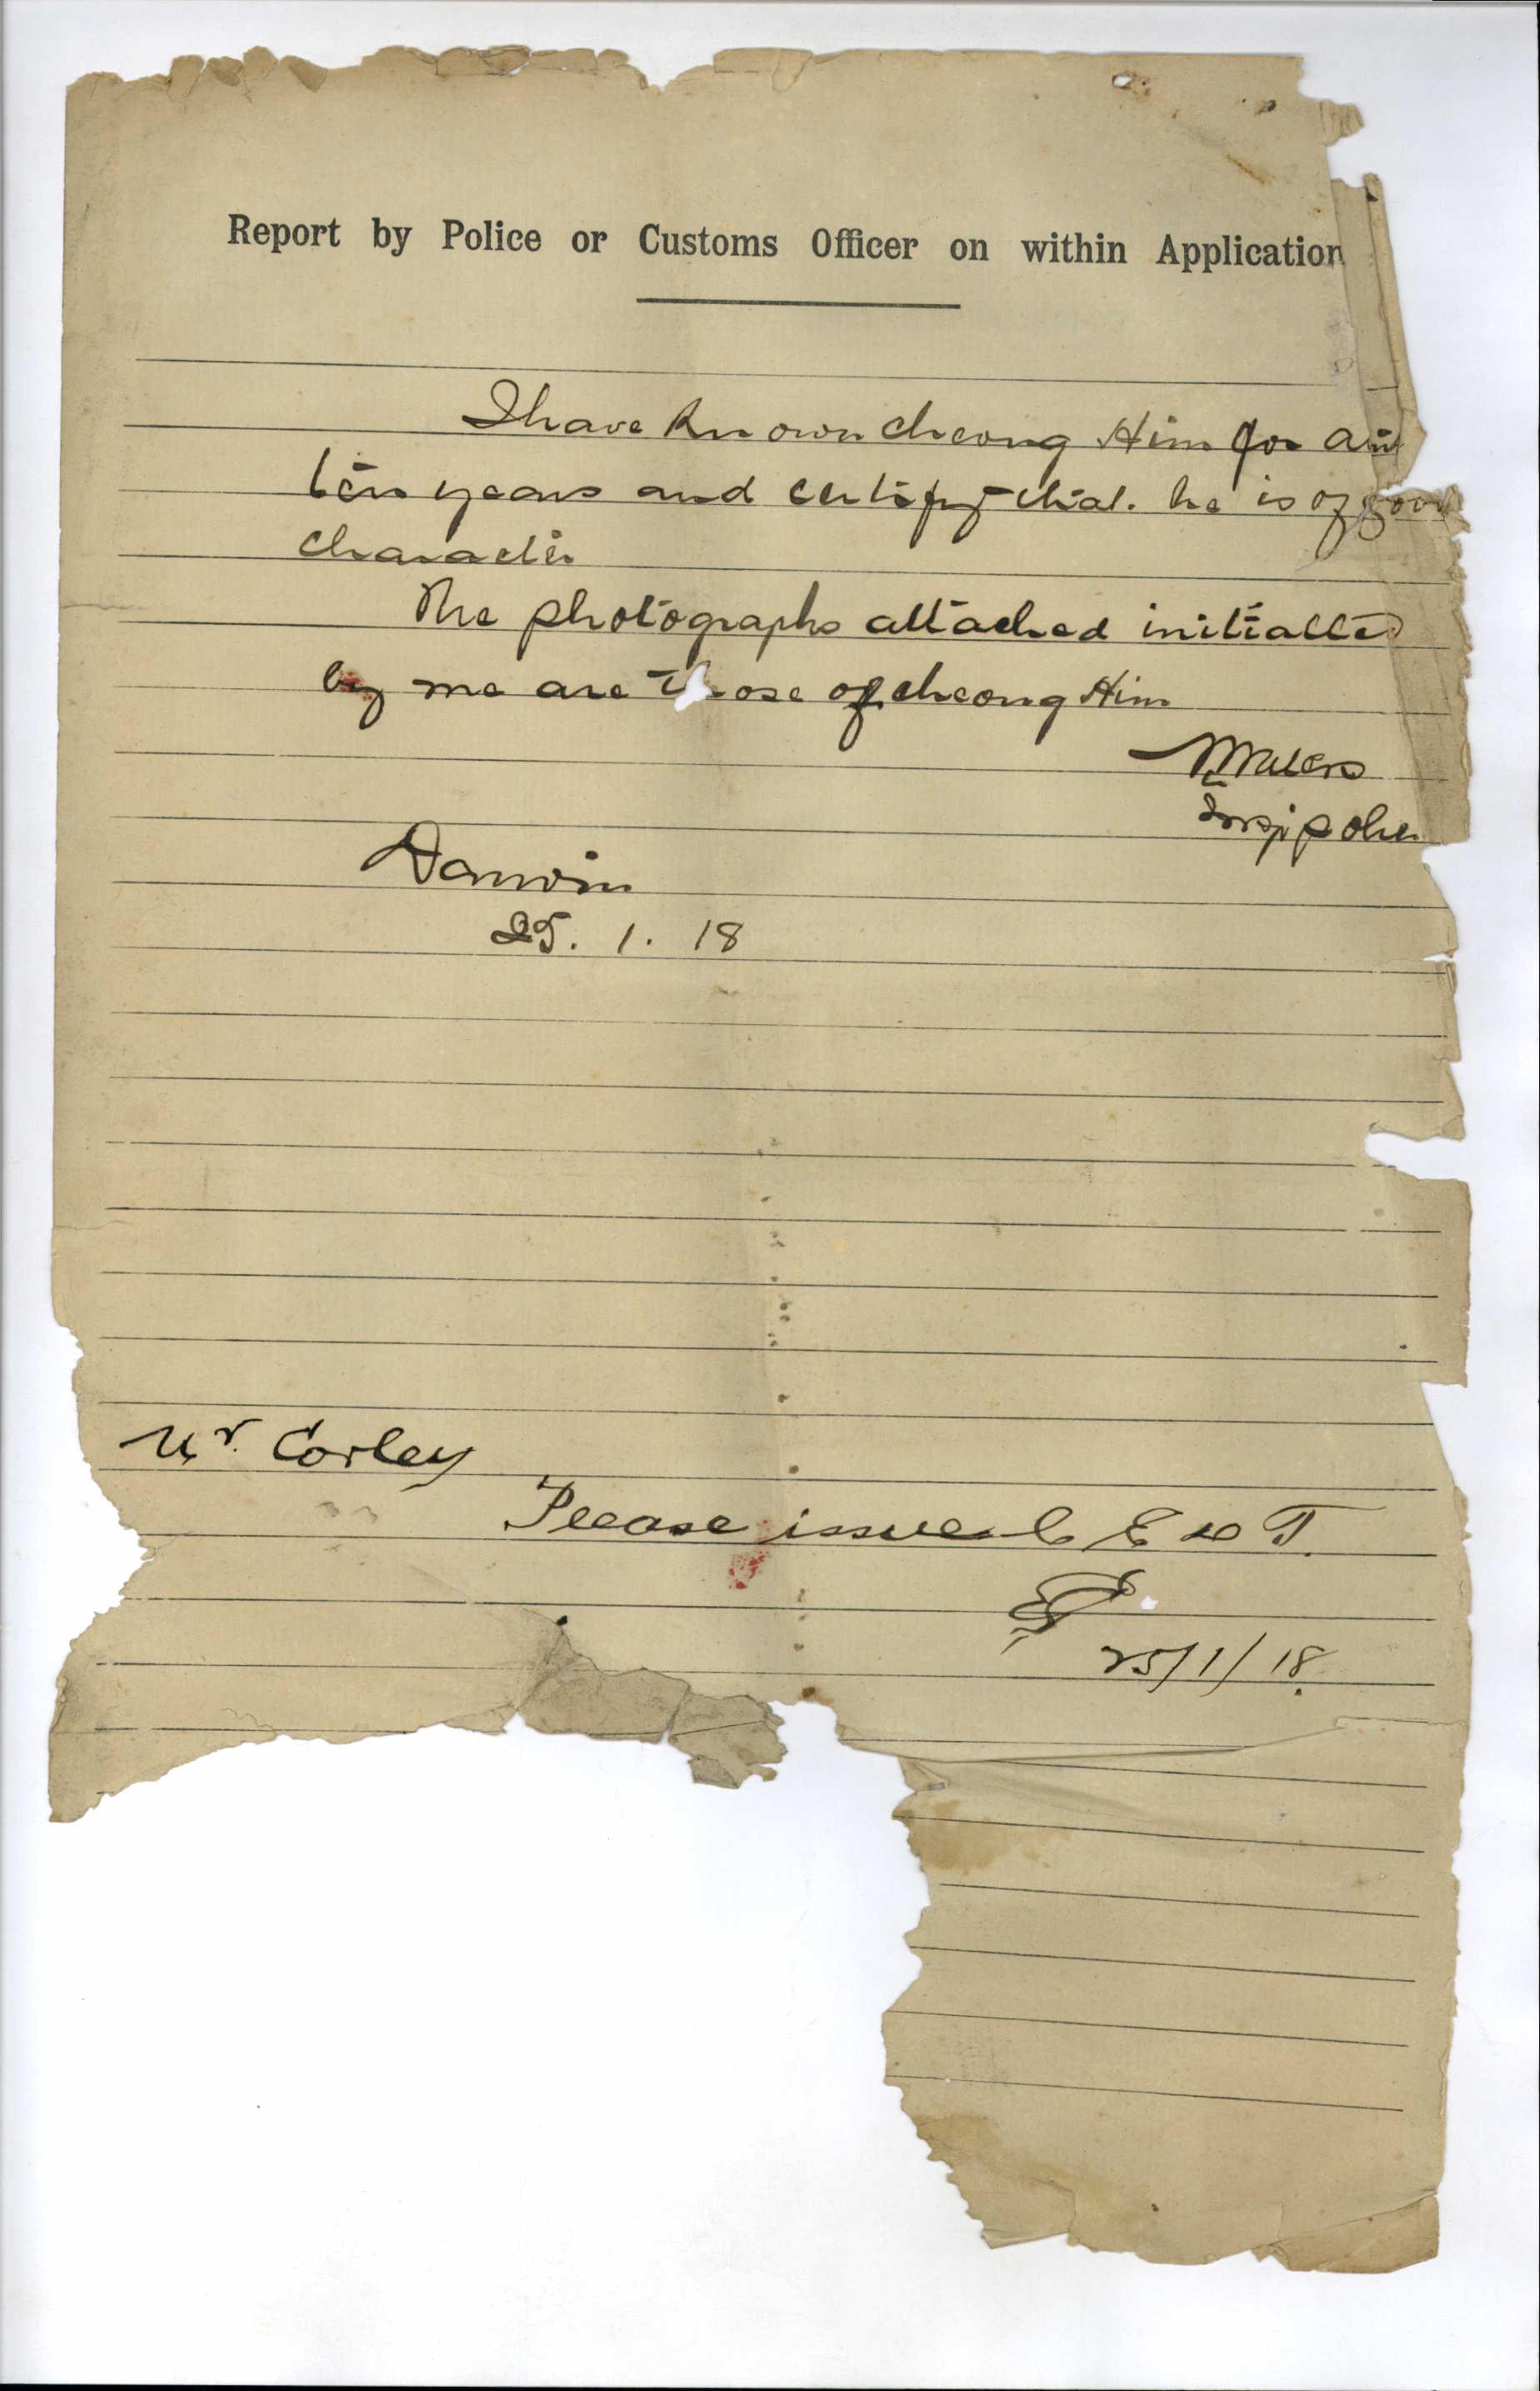 Report by Police or Customs Officer on within Application
I have known Cheong Him for
ten years and certify that he is of good
character
The photographs attached initialled
by me are those of Cheong Him
Insp Police
Darwin
25. 1. 18
Mr Corley
Please issue C E D T.
25/1/18.